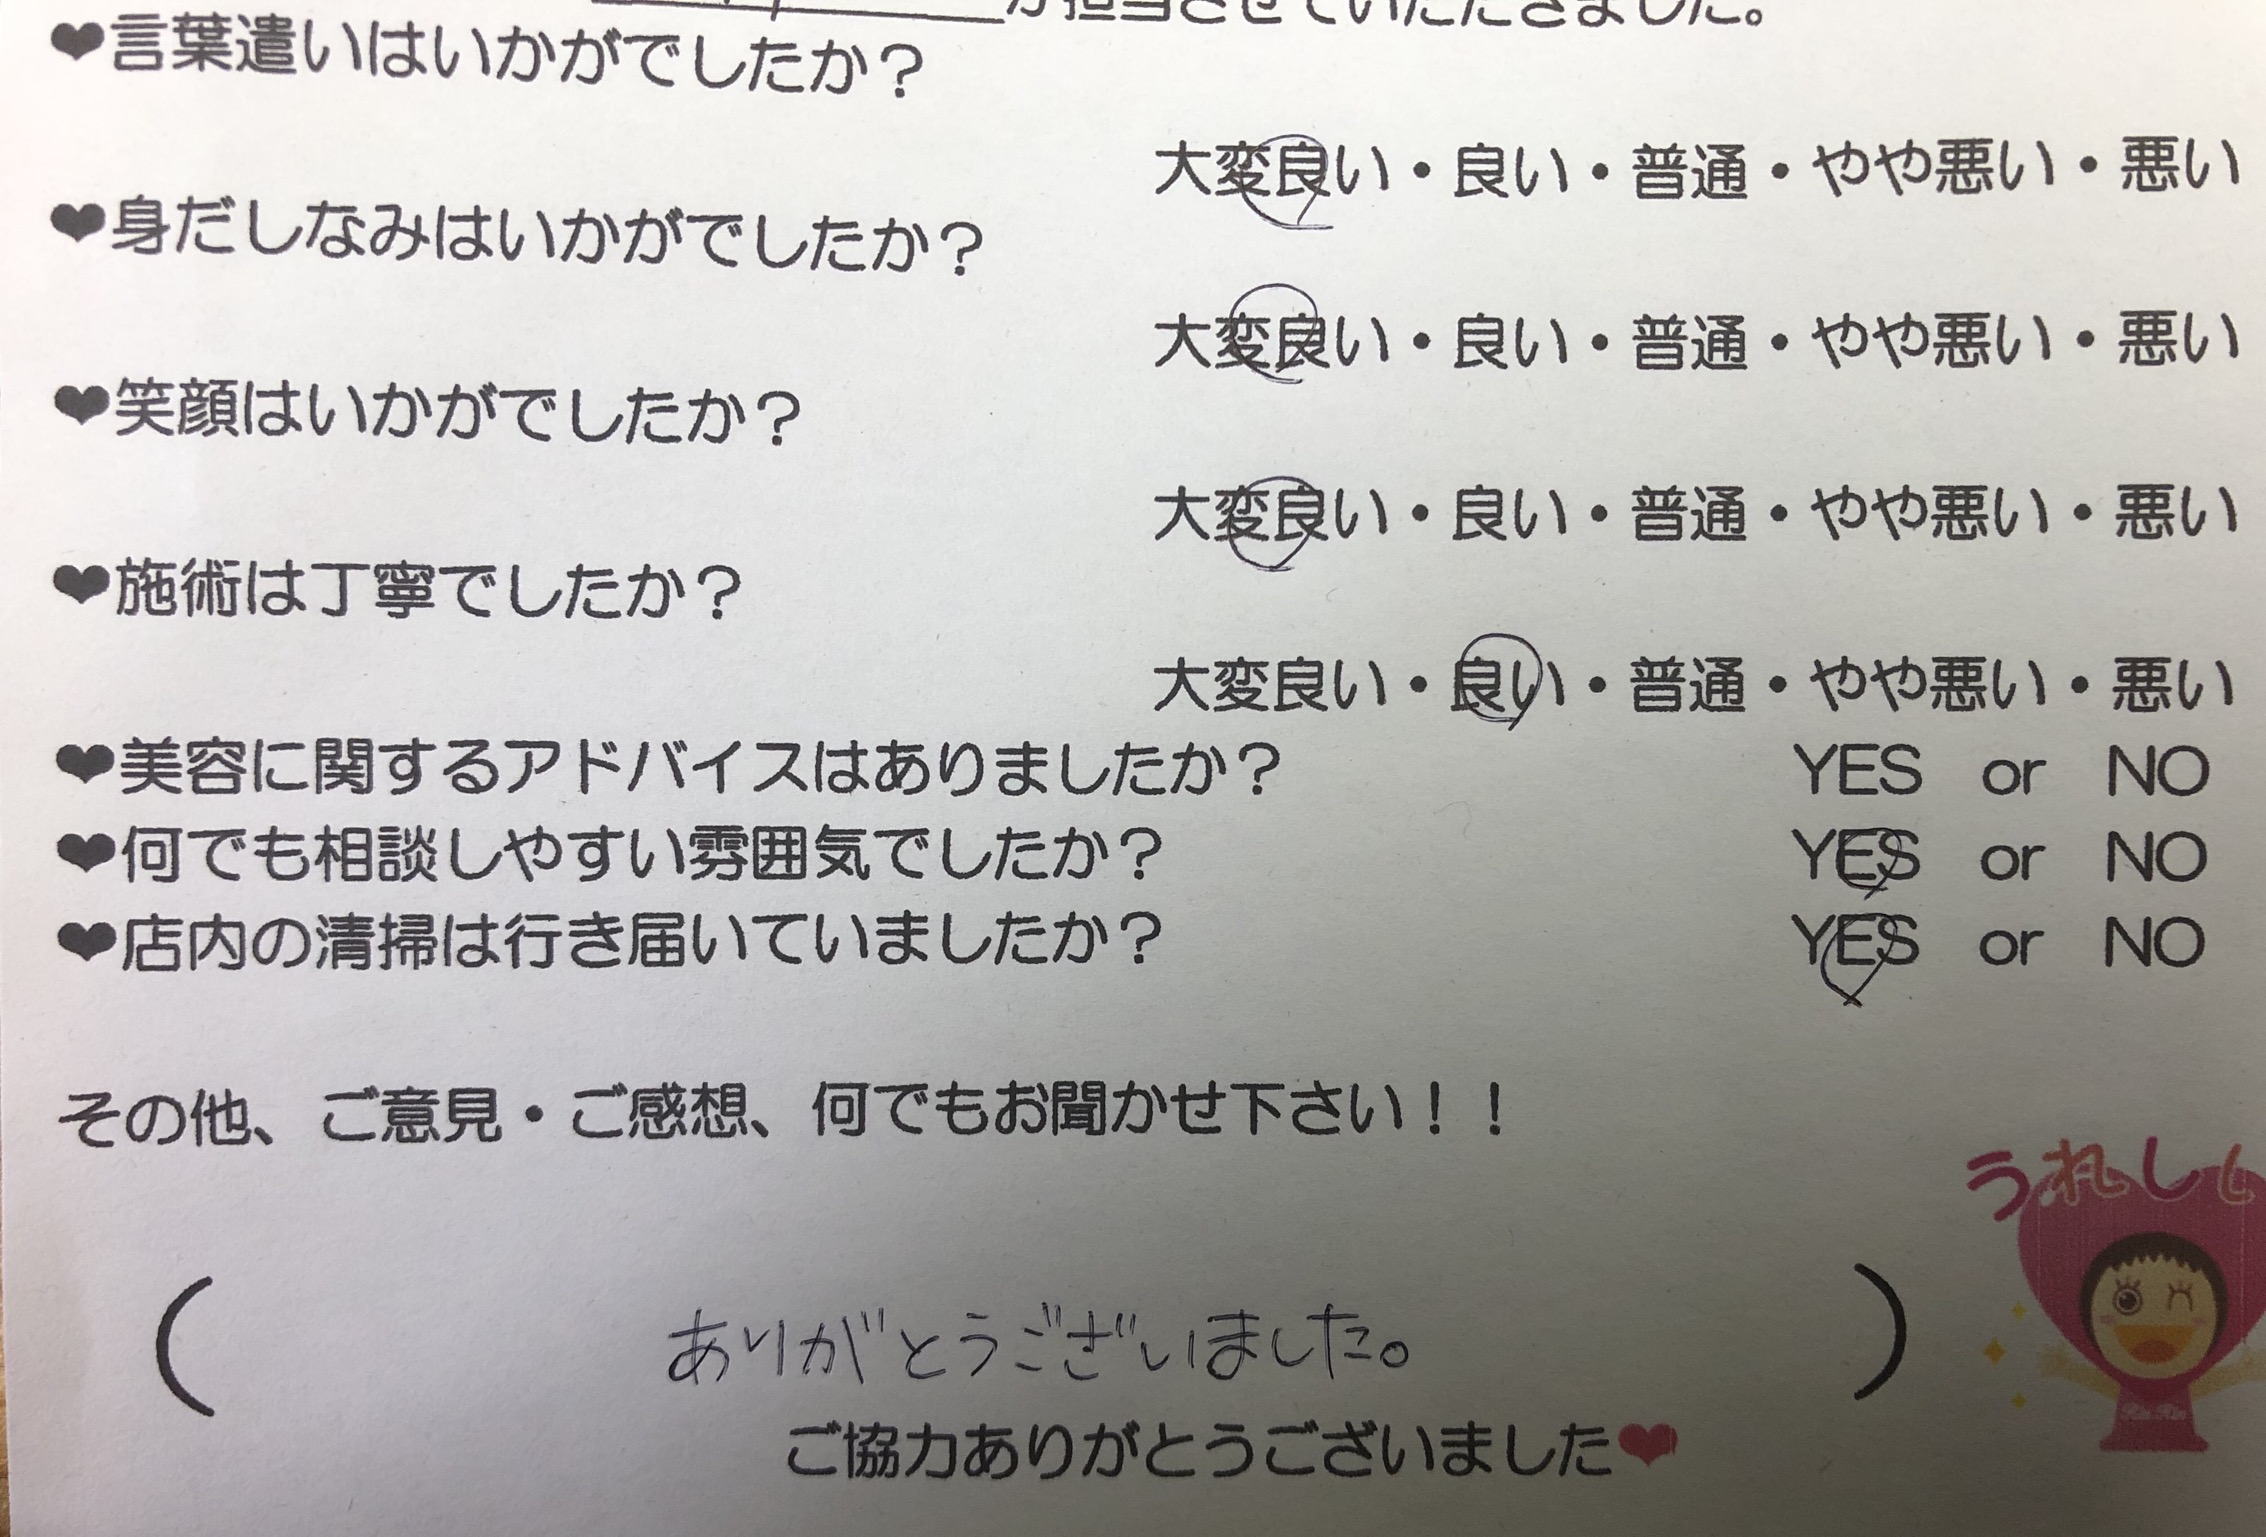 が担当させていただきました。
❤言葉遣いはいかがでしたか？
大変良い・良い・普通・やや悪い・悪い
❤身だしなみはいかがでしたか？
大変良い・良い・普通・やや悪い・悪い
❤笑顔はいかがでしたか？
大変良い・良い・普通・やや悪い・悪い
❤施術は丁寧でしたか？
大変良い・良い・普通・やや悪い・悪い
❤美容に関するアドバイスはありましたか？ YES or NO
❤何でも相談しやすい雰囲気でしたか？ YES or NO
❤店内の清掃は行き届いていましたか？ YES or NO
その他、ご意見・ご感想、何でもお聞かせ下さい！！
うれしい
（ ありがとうございました。 ）
ご協力ありがとうございました❤